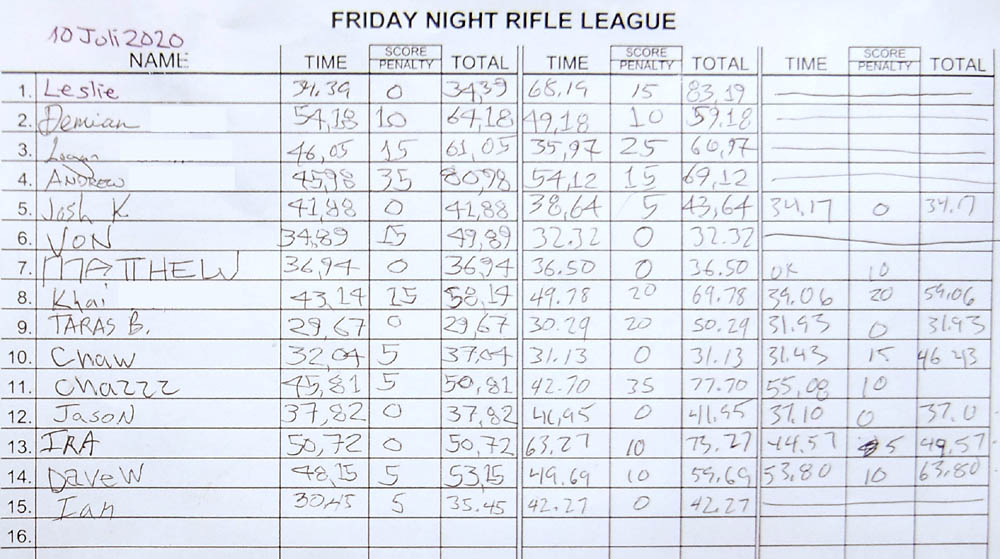 FRIDAY NIGHT RIFLE LEAGUE
10 Juli 2020
NAME TIME SCORE PENALTY TOTAL TIME SCORE PENALTY TOTAL TIME SCORE PENALTY TOTAL
1. Leslie 34.39 0 34,39 68,19 15 83,19
2. Demian 54,18 10 64,18 49,18 10 59,18
3. Logan 46,05 15 61,05 35,97 25 60,97
4. ANDREW 45,98 35 80,98 54,12 15 69,12
5. Josh K 41,88 0 41,88 38,64 5 43,64 34.17 0 34.17
6. VON 34,89 15 49,89 32.32 0 32.32
7. MATTHEW 36,94 0 36,94 36.50 0 36.50 OK 10
8. Khai 43,14 15 58,14 49.78 20 69.78 39.06 20 59.06
9. TARAS B. 29,67 0 29,67 30.29 20 50.29 31.93 0 31.93
10. Chaw 32,04 5 37.04 31.13 0 31.13 31.43 15 46.43
11. Chazzz 45,81 5 50,81 42.70 35 77.70 55,08 10
12. Jason 37,82 0 37,82 41,95 0 41.95 37.10 0 37.0
13. IRA 50,72 0 50,72 63.27 10 73.27 44.57 5 49.57
14. Dave W 48,15 5 53,15 49.69 10 59.69 53,80 10 63.80
15. Ian 30.45 5 35.45 42.27 0 42.27
16.